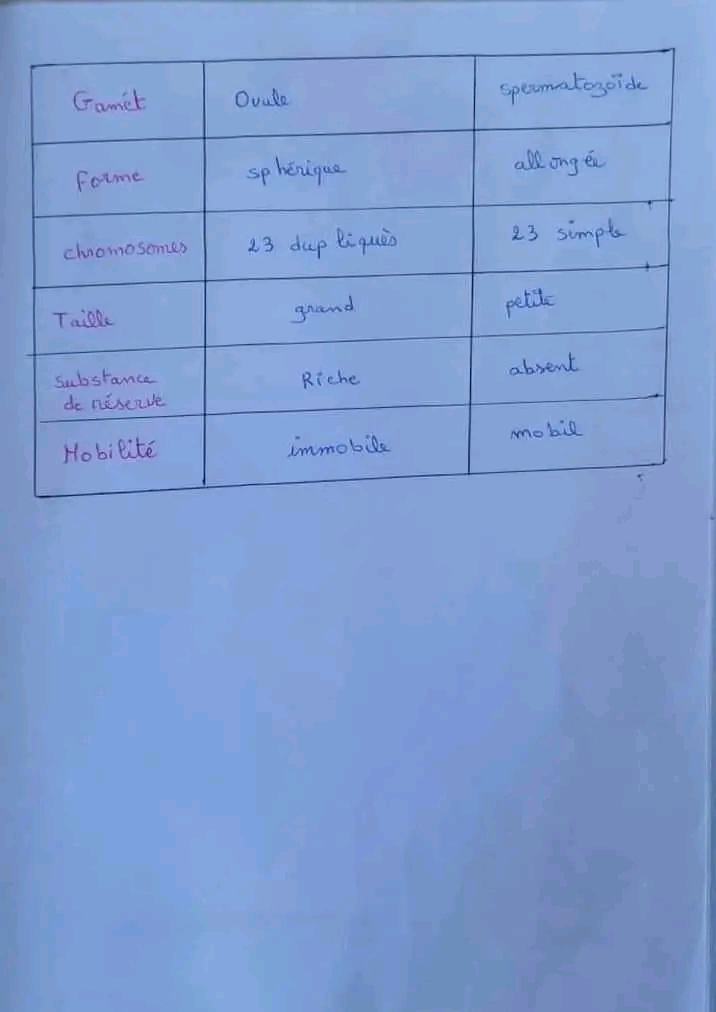 Gamét Ovule spermatozoïde
Forme sphérique allongée
chromosomes 23 dupliqués 23 simple
Taille grand petite
Substance de réserve Riche absent
Mobilité immobile mobil